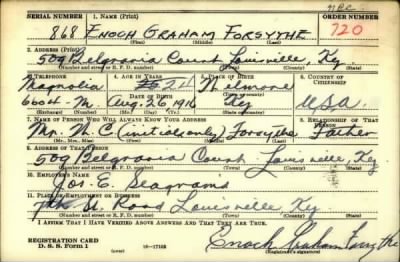 N.B.C.
SERIAL NUMBER 1. NAME (Print) ORDER NUMBER
868 ENOCH GRAHAM FORSYTHE 720
(First) (Middle) (Last)
2. ADDRESS (Print)
509 Belgravia Court Louisville, Ky.
(Number and street or R. F. D. number) (Town) (County) (State)
3. TELEPHONE 4. AGE IN YEARS 5. PLACE OF BIRTH 6. COUNTRY OF CITIZENSHIP
Magnolia
DATE OF BIRTH (Town or county)
6604-M. Aug. 26, 1916 Ky U.S.A.
(Exchange) (Number) (Mo.) (Day) (Yr.) (State or country)
7. NAME OF PERSON WHO WILL ALWAYS KNOW YOUR ADDRESS 8. RELATIONSHIP OF THAT PERSON
Mr. W. C. (initials only) Forsythe Father
(Mr., Mrs., Miss) (First) (Middle) (Last)
9. ADDRESS OF THAT PERSON
509 Belgravia Court Louisville, Ky
(Number and street or R. F. D. number) (Town) (County) (State)
10. EMPLOYER'S NAME
Jos. E. Seagrams
11. PLACE OF EMPLOYMENT OR BUSINESS
7th St. Road Louisville Ky
(Number and street or R. F. D. number) (Town) (County) (State)
I AFFIRM THAT I HAVE VERIFIED ABOVE ANSWERS AND THAT THEY ARE TRUE.
REGISTRATION CARD
D. S. S. Form 1 (over) 16-17105 Enoch Graham Forsythe
(Registrant's signature)